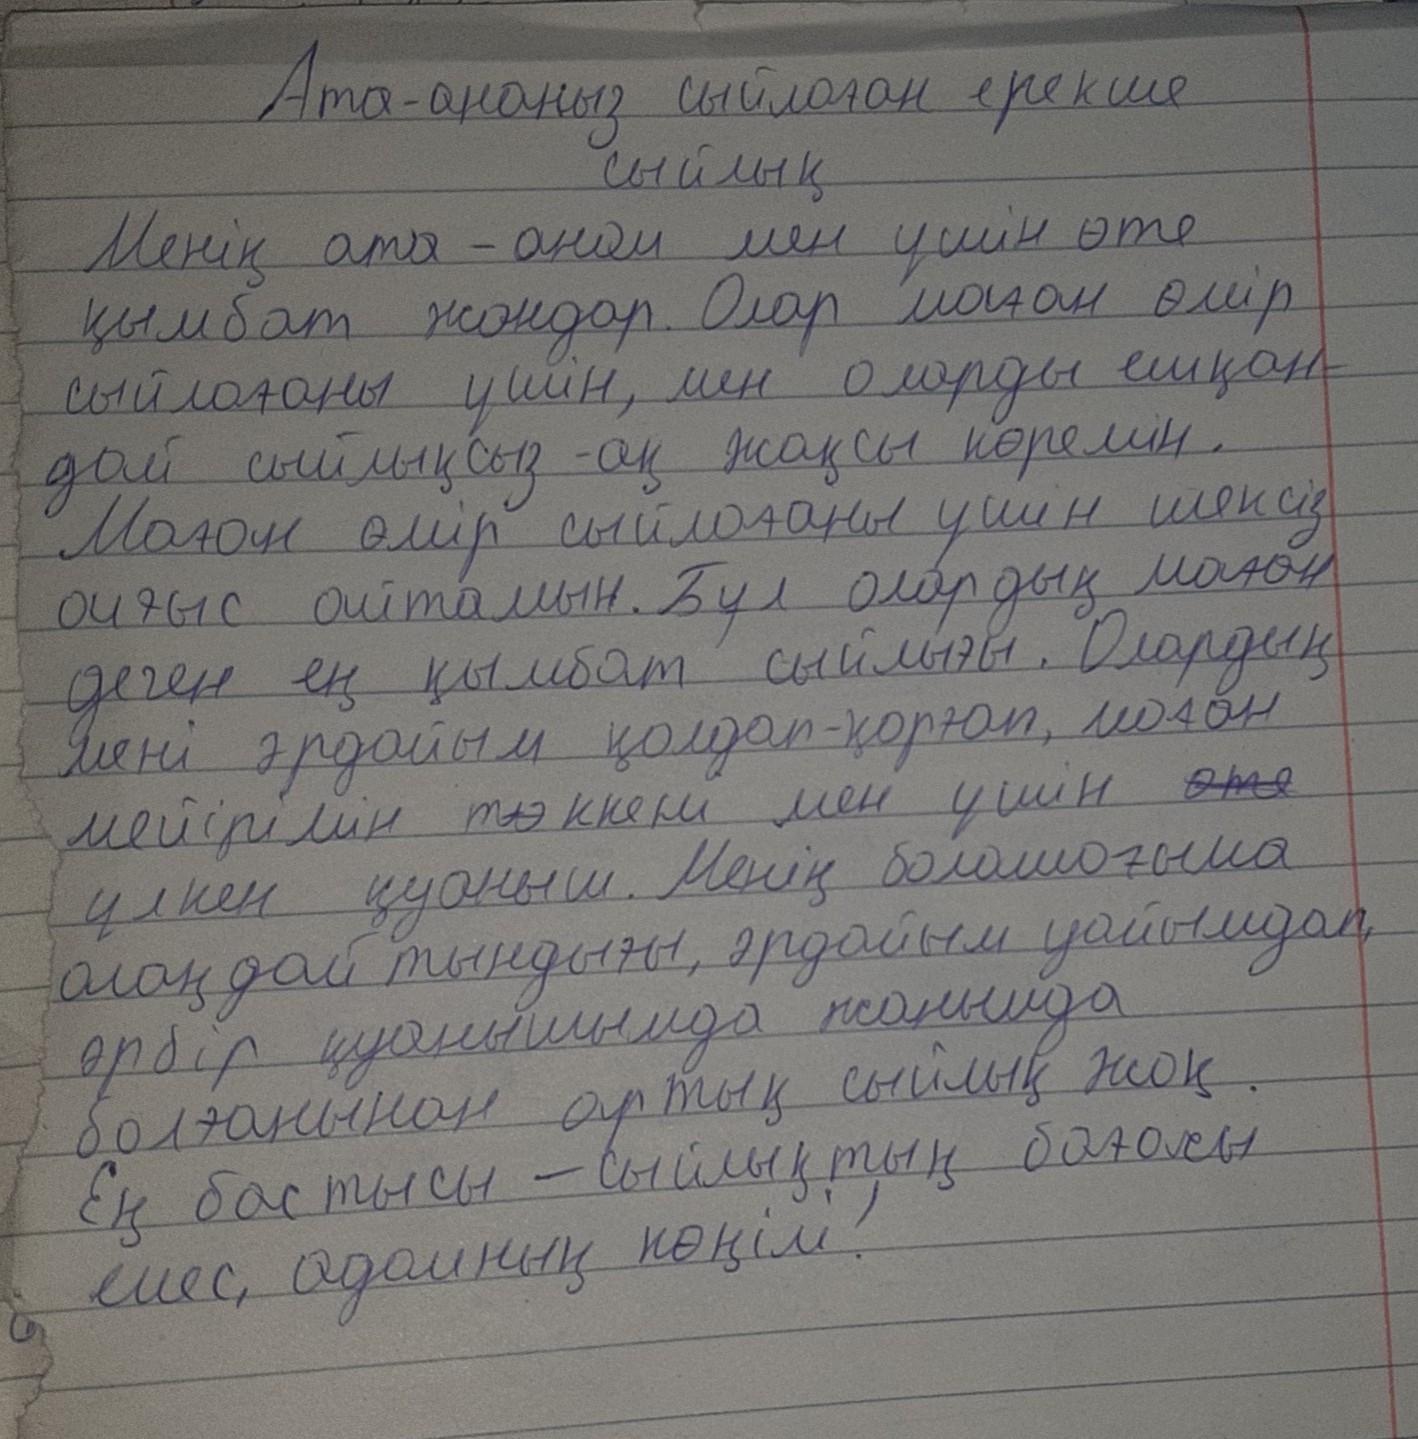 Ата-анаңыз сыйлаған ерекше
сыйлық
Менің ата-анам мен үшін өте
қымбат жандар. Олар маған өмір
сыйлағаны үшін, мен оларды ешқан-
дай сыйлықсыз-ақ жақсы көремін.
Маған өмір сыйлағаны үшін шексіз
алғыс айтамын. Бұл олардың маған
деген ең қымбат сыйлығы. Олардың
мені әрдайым қолдап-қорғап, маған
мейірімін төккені мен үшін өте
үлкен қуаныш. Менің болашағыма
алаңдайтындығы, әрдайым уайымдап,
әрбір қуанышымда жанымда
болғанынан артық сыйлық жоқ.
Ең бастысы – сыйлықтың бағасы
емес, адамның көңілі!